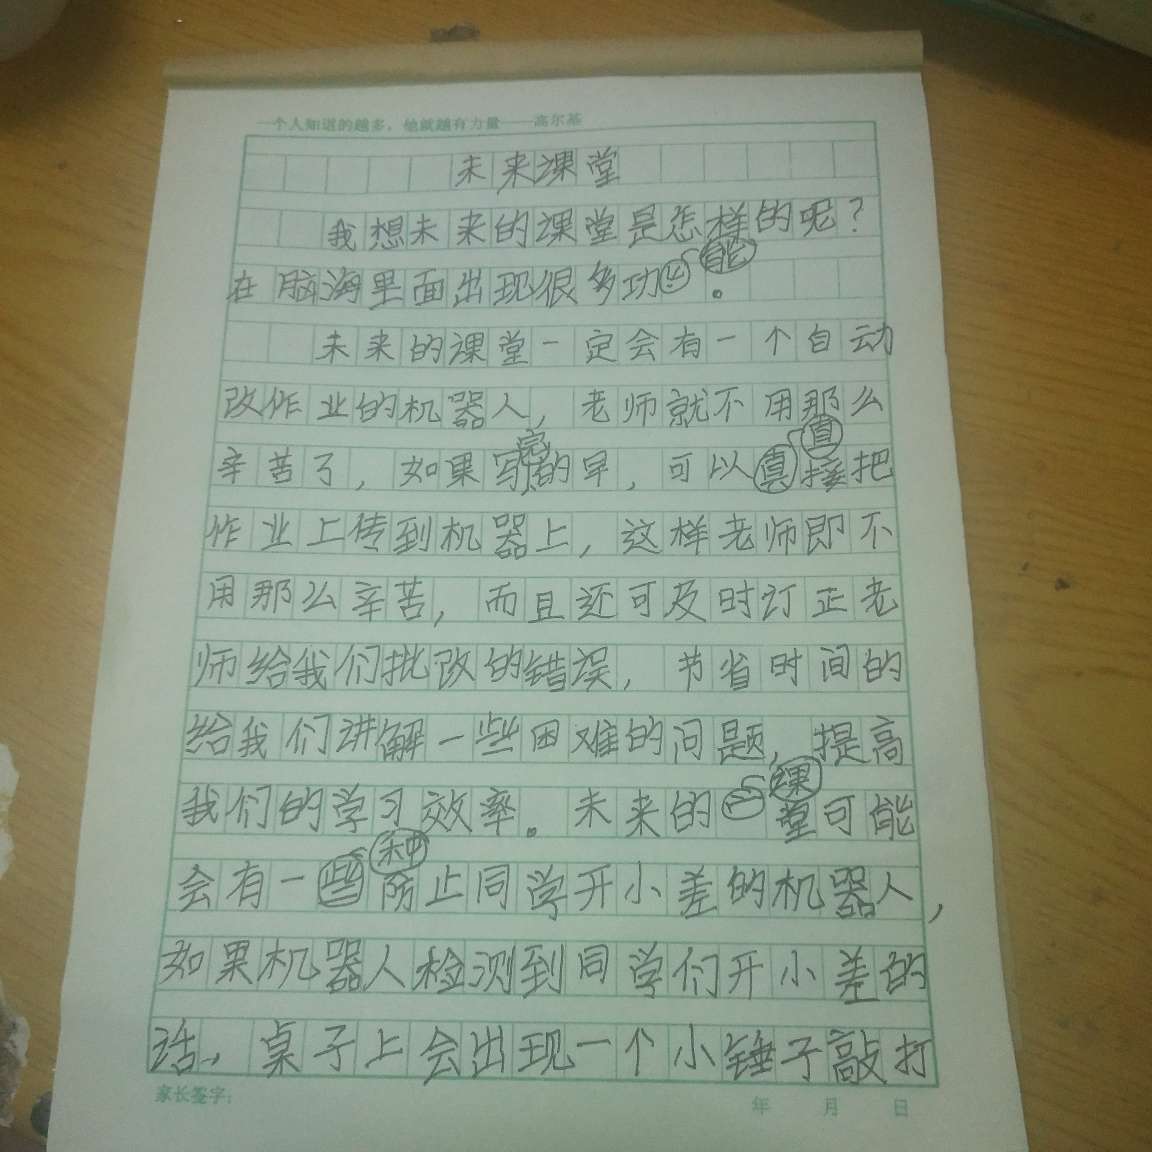 一个人知道的越多，他就越有力量——高尔基
未来课堂
我想未来的课堂是怎样的呢？
在脑海里面出现很多功能。
未来的课堂一定会有一个自动
改作业的机器人，老师就不用那么
辛苦了，如果写完的早，可以直接把
作业上传到机器上，这样老师即不
用那么辛苦，而且还可及时订正老
师给我们批改的错误，节省时间的
给我们讲解一些困难的问题，提高
我们的学习效率。未来的课堂可能
会有一种防止同学开小差的机器人，
如果机器人检测到同学们开小差的
话，桌子上会出现一个小锤子敲打
家长签字： 年 月 日